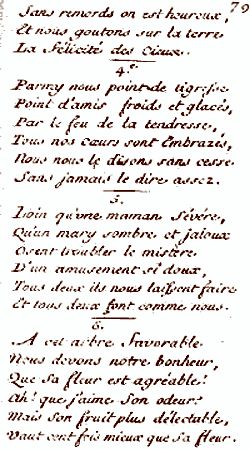 79
Sans remords on est heureux,
Et nous goutons sur la terre
La félicité des Cieux.
4.e
Parmy nous point de tigresse
Point d'amis froids et glacés,
Par le feu de la tendresse,
Tous nos cœurs sont Embrazés,
Nous nous le disons sans cesse
Sans jamais le dire assez.
5.
Loin qu'vne maman Sévére,
Qu'un mary sombre et jaloux
Osent troubler le mistere
D'un amusement si doux,
Tous deux ils nous laissent faire
Et tous deux font comme nous.
6.
A cet arbre favorable
Nous devons notre bonheur,
Que Sa fleur est agréable!
Ah! que j'aime Son odeur!
Mais Son fruit plus délectable,
Vaut cent fois mieux que Sa fleur.